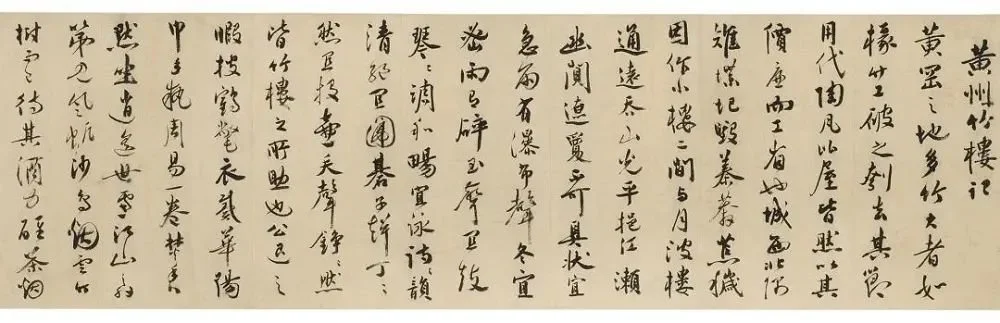 黃州竹樓記
黃岡之地多竹大者如
椽竹工破之刳去其節
用代陶瓦比屋皆然以其
價廉而工省也城西北隅
雉堞圮毀蓁莽荒穢
因作小樓二間与月波樓
通遠吞山光平挹江瀨
幽闃遼夐不可具狀宜
急雨有瀑布聲冬宜
密雨有碎玉聲宜鼓
琴々調和暢宜詠詩々韻
清絕宜圍碁子聲丁々
然宜投壺矢聲錚々然
皆竹樓之所助也公退之
暇披鶴氅衣戴華陽
巾手執周易一卷焚香
默坐消遣世慮江山之外
第見風帆沙鳥煙雲竹
樹而已待其酒力醒茶煙